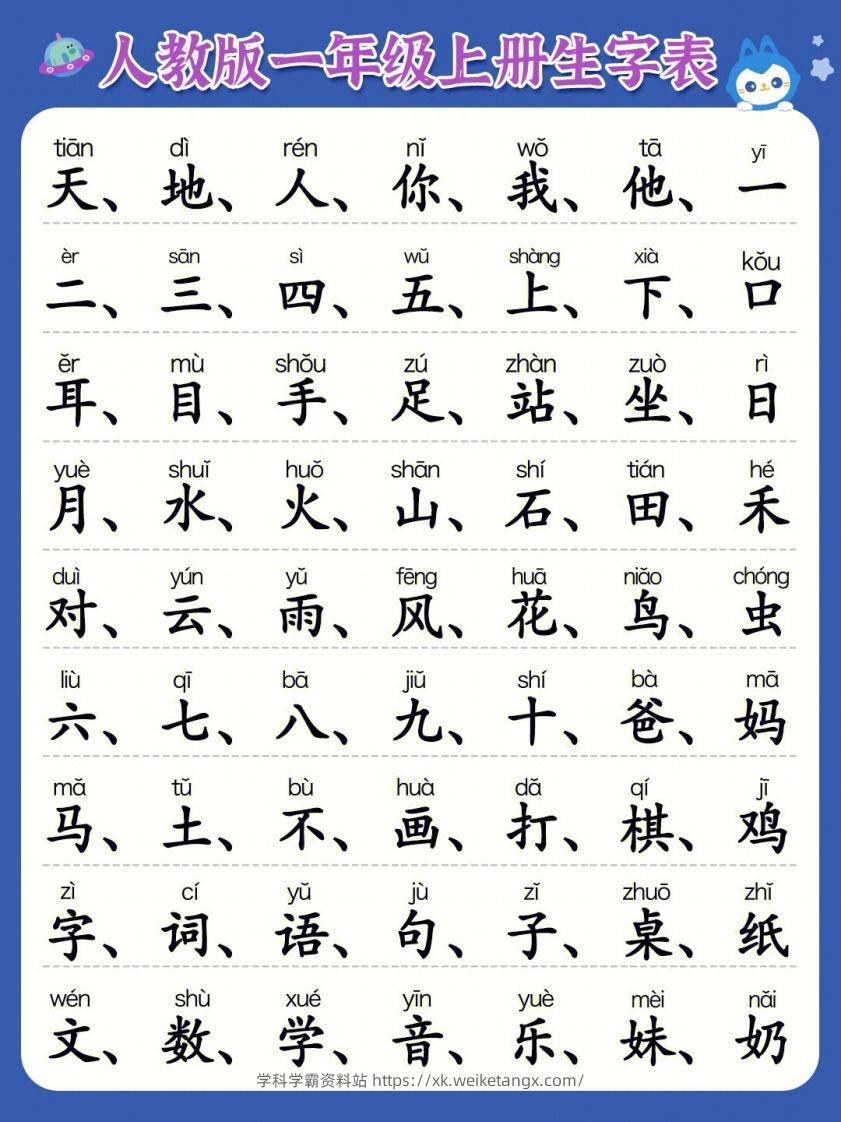 人教版一年级上册生字表
tiān dì rén nǐ wǒ tā yī
天、地、人、你、我、他、一
èr sān sì wǔ shàng xià kǒu
二、三、四、五、上、下、口
ěr mù shǒu zú zhàn zuò rì
耳、目、手、足、站、坐、日
yuè shuǐ huǒ shān shí tián hé
月、水、火、山、石、田、禾
duì yún yǔ fēng huā niǎo chóng
对、云、雨、风、花、鸟、虫
liù qī bā jiǔ shí bà mā
六、七、八、九、十、爸、妈
mǎ tǔ bù huà dǎ qí jī
马、土、不、画、打、棋、鸡
zì cí yǔ jù zǐ zhuō zhǐ
字、词、语、句、子、桌、纸
wén shù xué yīn yuè mèi nǎi
文、数、学、音、乐、妹、奶
学科学霸资料站 https://xk.weiketangx.com/